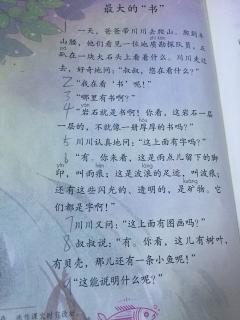 最大的“书”
1 一天，爸爸带川川去爬山。爬到半
山腰，他们看见一位地质勘探队员，正
趴在一块大石头上看着什么。川川走过
去，好奇地问：“叔叔，您在看什么？”
2 “我在看‘书’呢！”
3 “哪里有书啊？”
4 “岩石就是书啊！你看，这岩石一层
一层的，不就像一册厚厚的书吗？”
5 川川认真地问：“这上面有字吗？”
6 “有。你来看，这是雨点儿留下的脚
印，叫雨痕；这是波浪的足迹，叫波痕；
还有这些闪光的、透明的，是矿物。它
们都是字啊！”
7 川川又问：“这上面有图画吗？”
8 叔叔说：“有。你看，这儿有树叶，
有贝壳，那儿还有一条小鱼呢！”
9 “这能说明什么呢？”